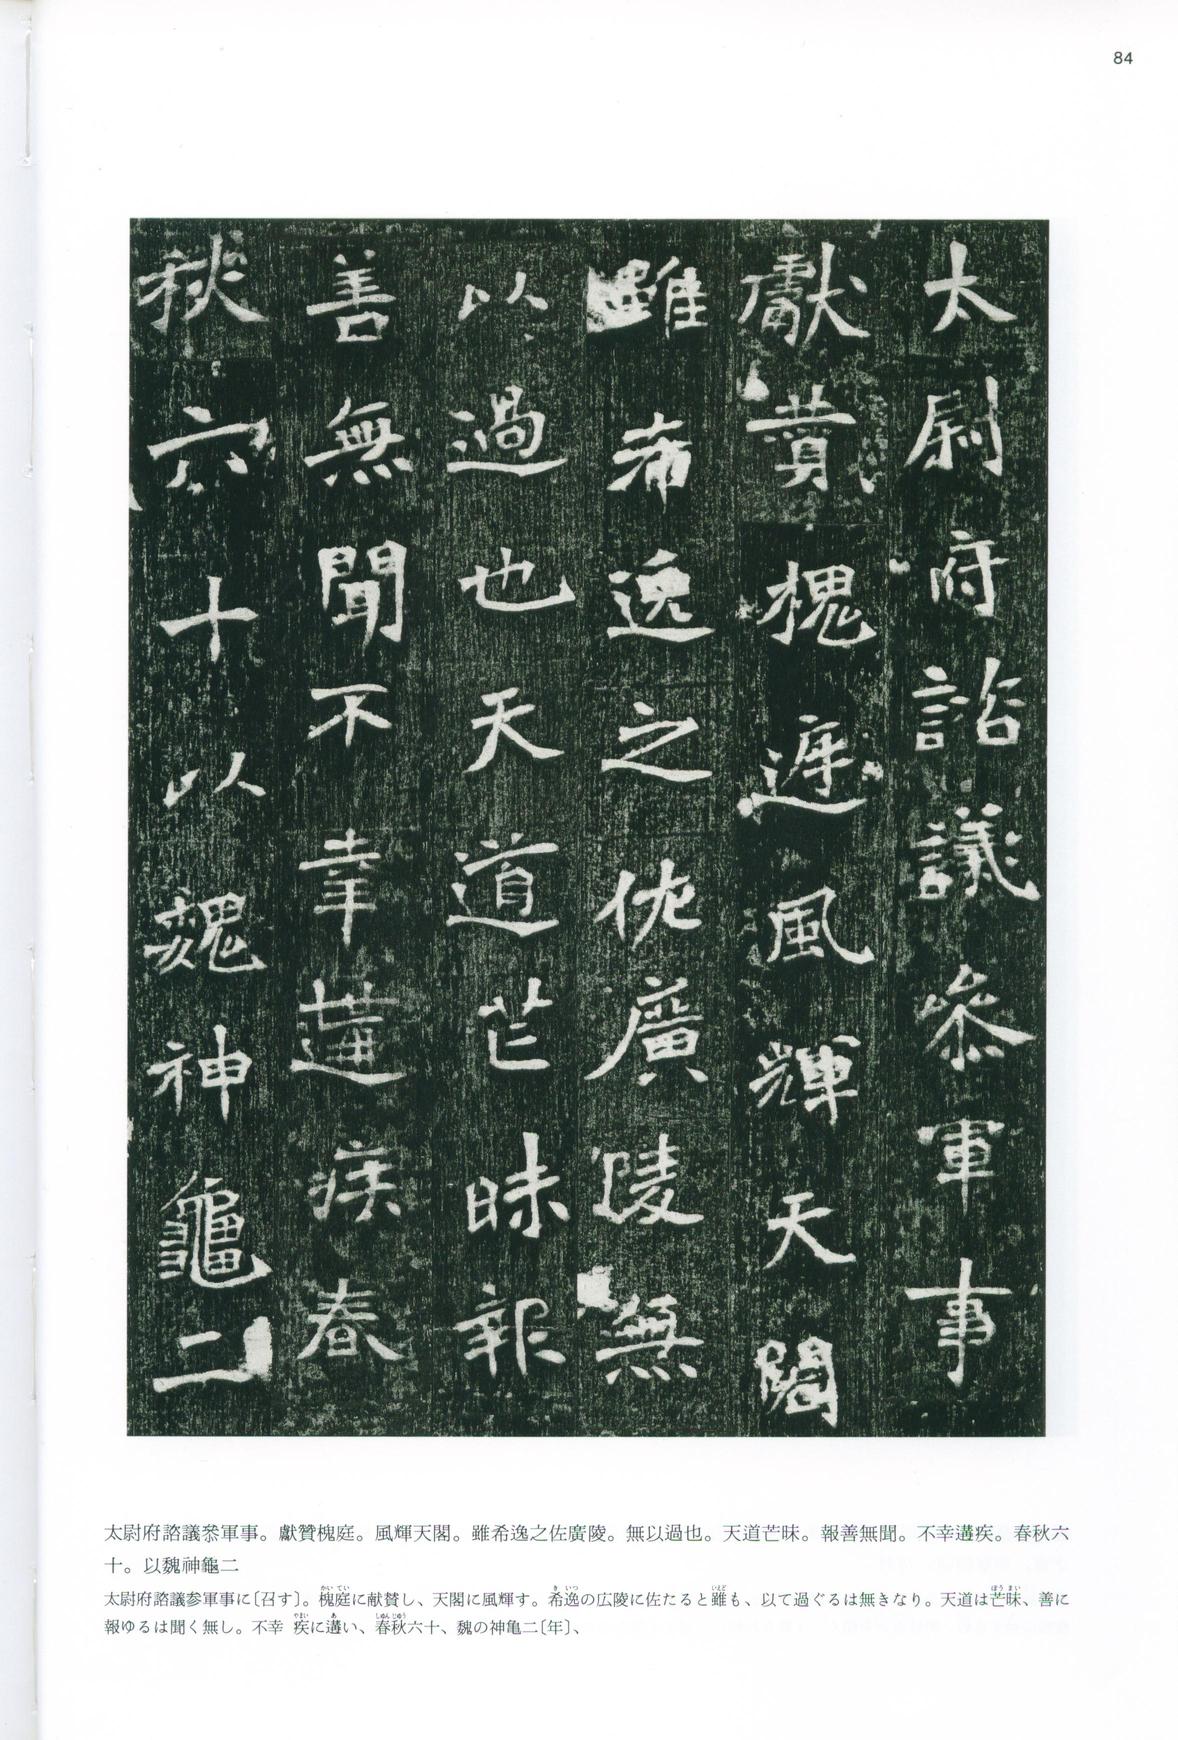 84
太尉府諮議叅軍事
獻賛槐庭風輝天閣
雖希逸之佐廣陵無
以過也天道芒昧報
善無聞不幸遘疾春
秋六十以魏神龜二
太尉府諮議叅軍事。獻贊槐庭。風輝天閣。雖希逸之佐廣陵。無以過也。天道芒昧。報善無聞。不幸遘疾。春秋六
十。以魏神龜二
太尉府諮議参軍事に〔召す〕。槐庭に献賛し、天閣に風輝す。希逸の広陵に佐たると雖も、以て過ぐるは無きなり。天道は芒昧、善に
報ゆるは聞く無し。不幸 疾に遘い、春秋六十、魏の神亀二〔年〕、